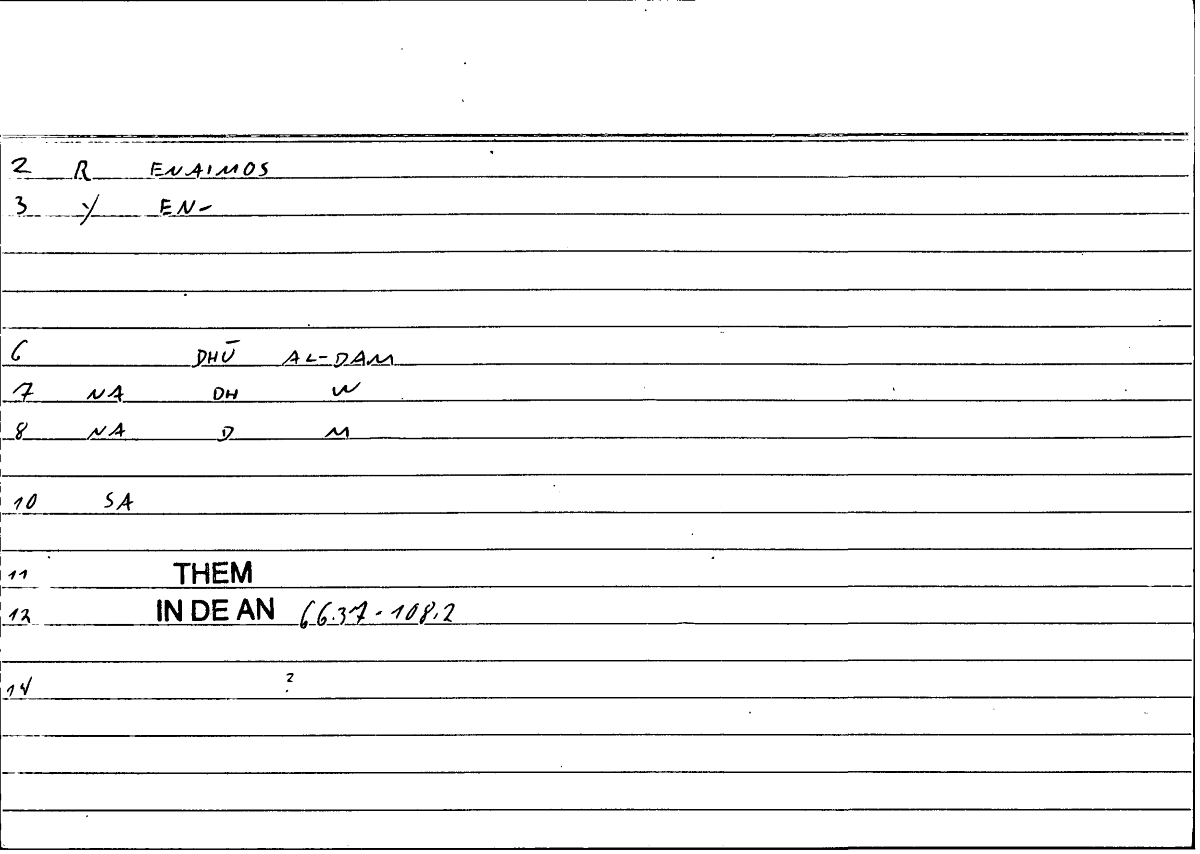 2 R ENAIMOS
3 Y EN-
6 DHŪ AL-DAM
7 NA DH W
8 NA D M
10 SA
11 THEM
12 IN DE AN 66.37-108.2
14 ?